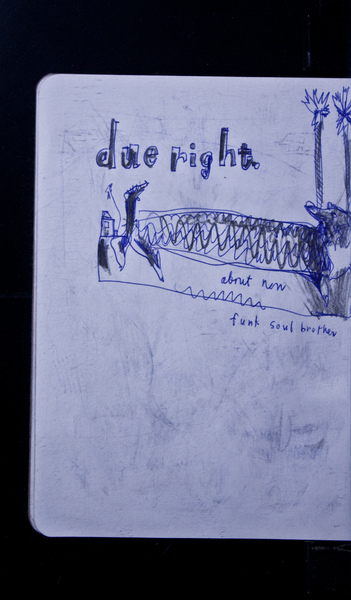 due right.
about now
funk soul brother